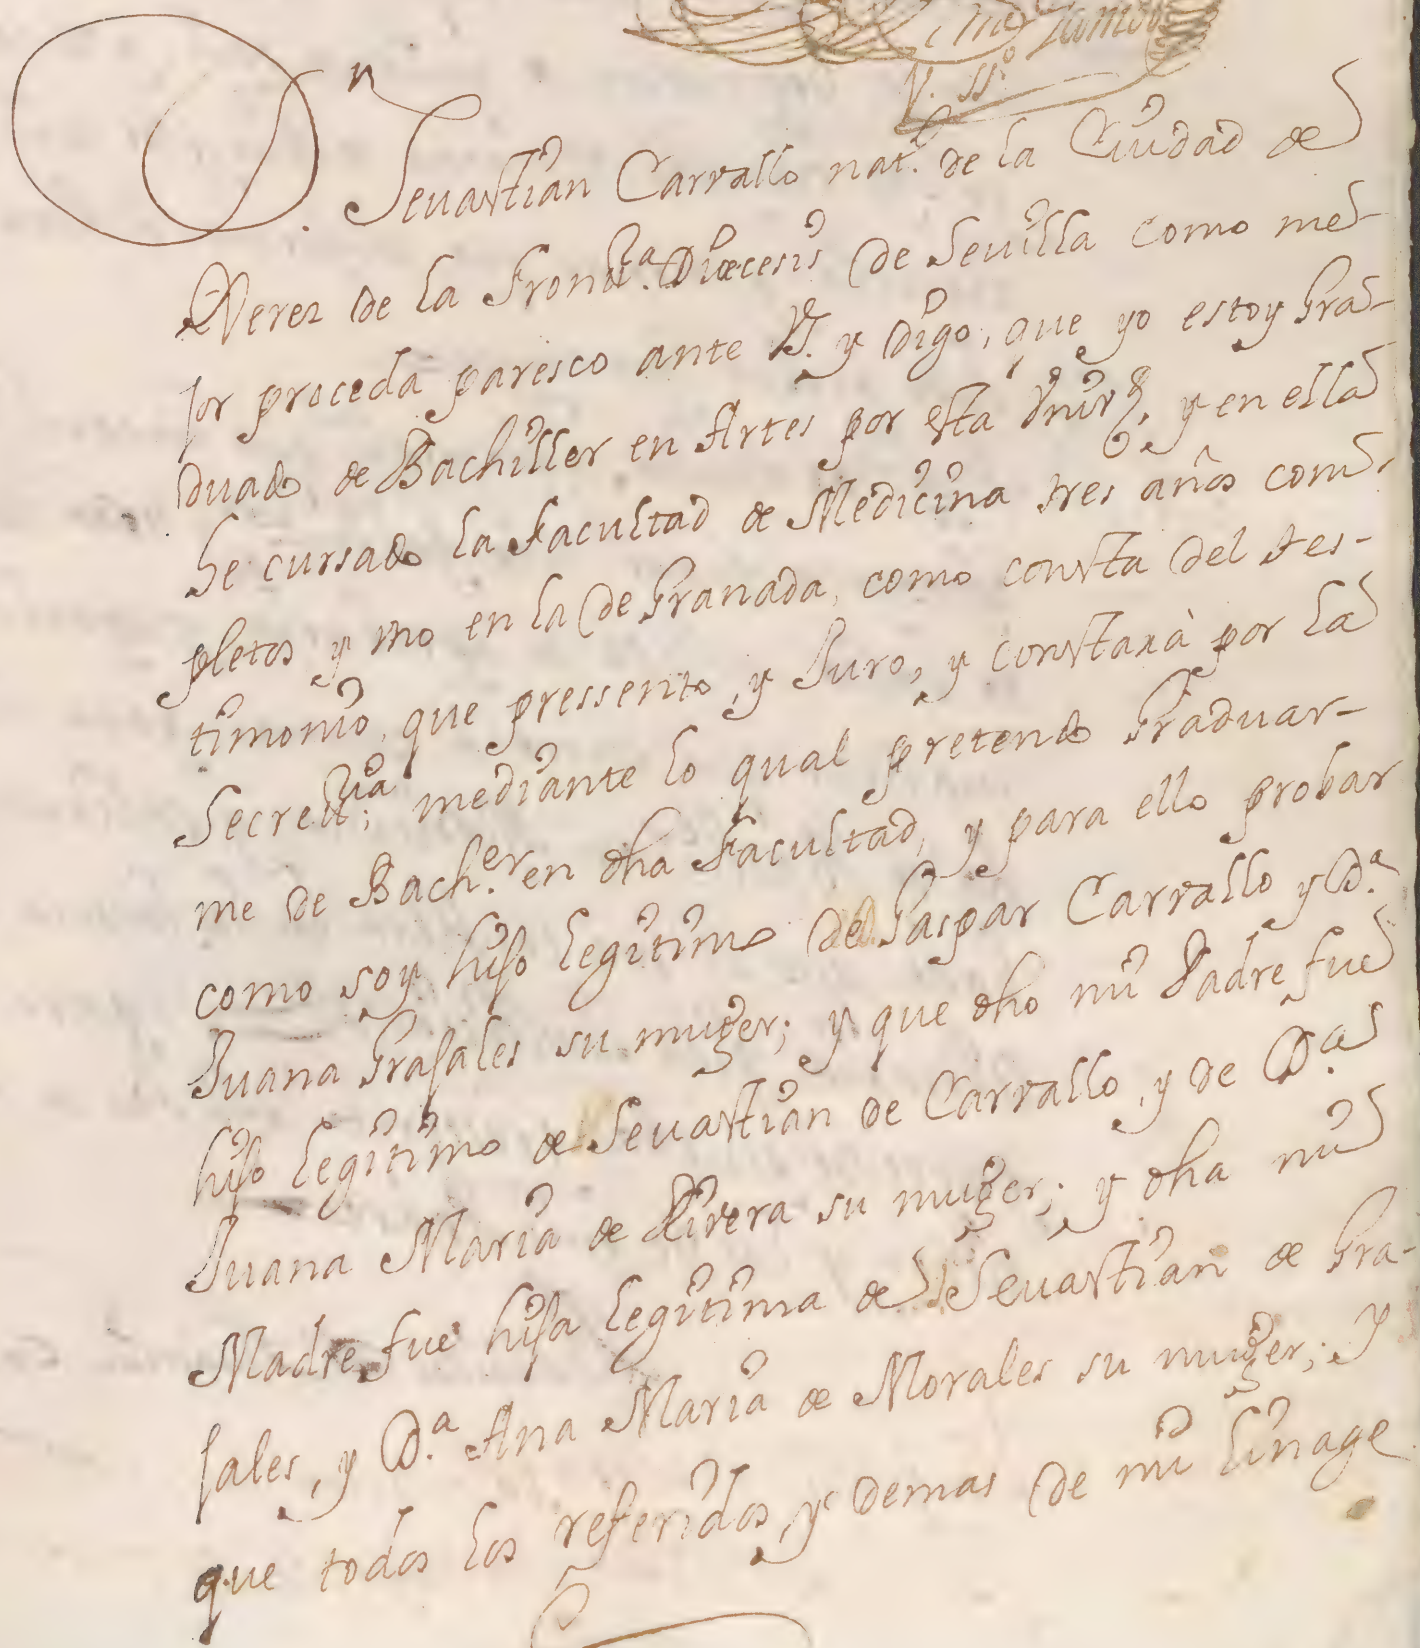 V. SS.º
D.n Sevastian Carvallo nat.l de la Ciudad de
Xerez de la Front.ra Diœcesis de Sevilla como me-
jor proceda paresco ante V.S. y digo, que yo estoy Gra-
duado de Bachiller en Artes por esta Univ.d, y en ella
he cursado la Facultad de Medicina tres años com-
pletos y uno en la de Granada, como consta del tes-
timonio, que pressento, y Juro, y constarà por la
Secret.ria; mediante lo qual pretendo Graduar-
me de Bach.er en dha Facultad, y para ello probar
como soy hijo legitimo de Gaspar Carvallo y D.a
Juana Grajales su muger; y que dho mi Padre fue
hijo legitimo de Sevastian de Carvallo, y de D.a
Juana Maria de Rivera su muger; y dha mi
Madre fue hija legitima de Sevastian de Gra-
jales, y D.a Ana Maria de Morales su muger; Y
que todos los referidos, y demas de mi linage